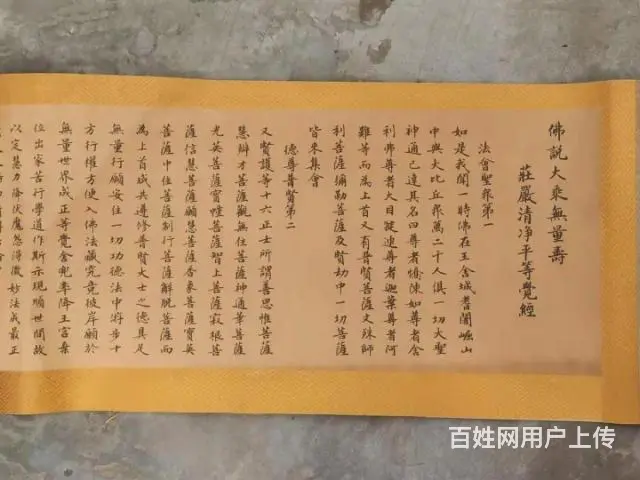 佛説大乘無量壽
莊嚴清净平等覺經
法會聖眾第一
如是我聞一時佛在王舍城耆闍崛山
中與大比丘眾萬二千人俱一切大聖
神通已達其名曰尊者憍陳如尊者舍
利弗尊者大目犍連尊者迦葉尊者阿
難等而為上首又有普賢菩薩文殊師
利菩薩彌勒菩薩及賢劫中一切菩薩
皆來集會
德尊普賢第二
又賢護等十六正士所謂善思惟菩薩
慧辯才菩薩觀無住菩薩神通華菩薩
光英菩薩寶幢菩薩智上菩薩寂根菩
薩信慧菩薩願慧菩薩香象菩薩寶英
菩薩中住菩薩制行菩薩解脫菩薩而
為上首咸共遵修普賢大士之德具足
無量行願安住一切功德法中遊步十
方行權方便入佛法藏究竟彼岸願於
無量世界成正等覺舍兜率降王宮棄
位出家苦行學道作斯示現順世間故
以定慧力降伏魔怨得微妙法成最正
百姓网用户上传